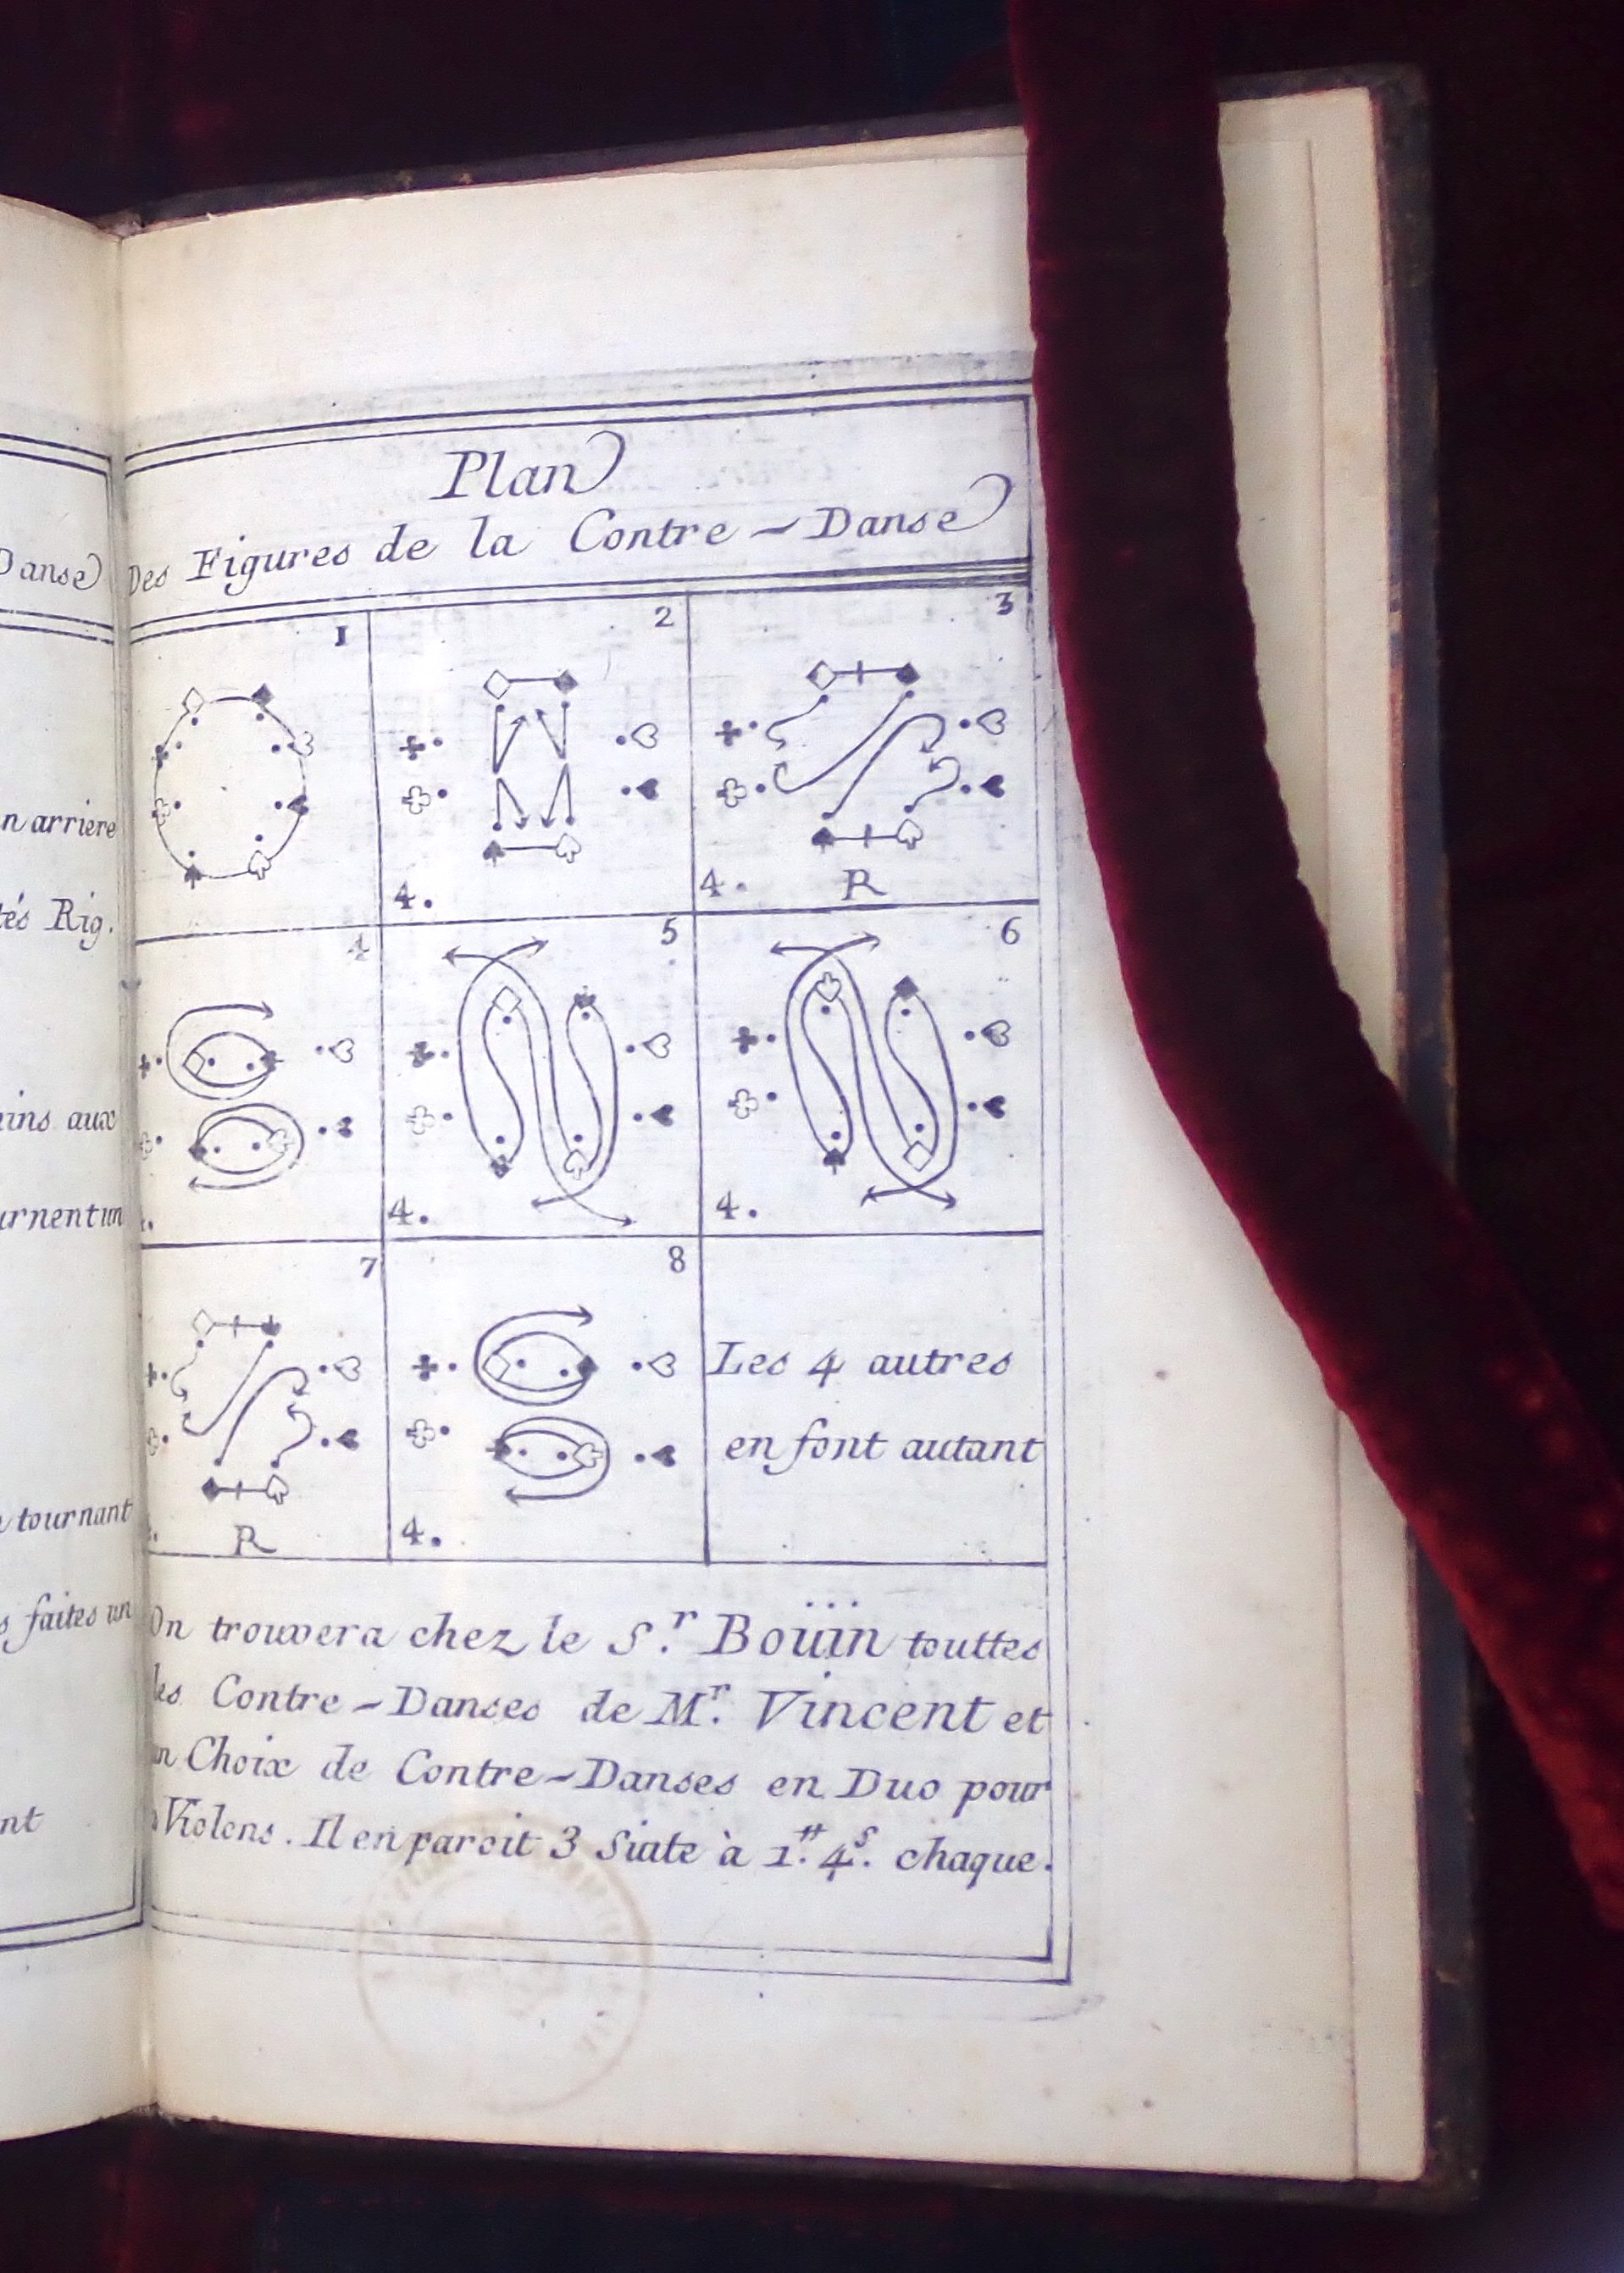 Plan
Des Figures de la Contre-Danse
Danse
1
2
3
n arriere
4.
4. R
tés Rig.
4
5
6
ins aux
urnent un
4.
4.
7
8
Les 4 autres
en font autant
tournant
R
4.
faites un
On trouvera chez le S.r Boüin touttes
les Contre-Danses de Mr. Vincent et
un Choix de Contre-Danses en Duo pour
Violons. Il en paroit 3 Siute à 1.tt 4.s chaque.
nt